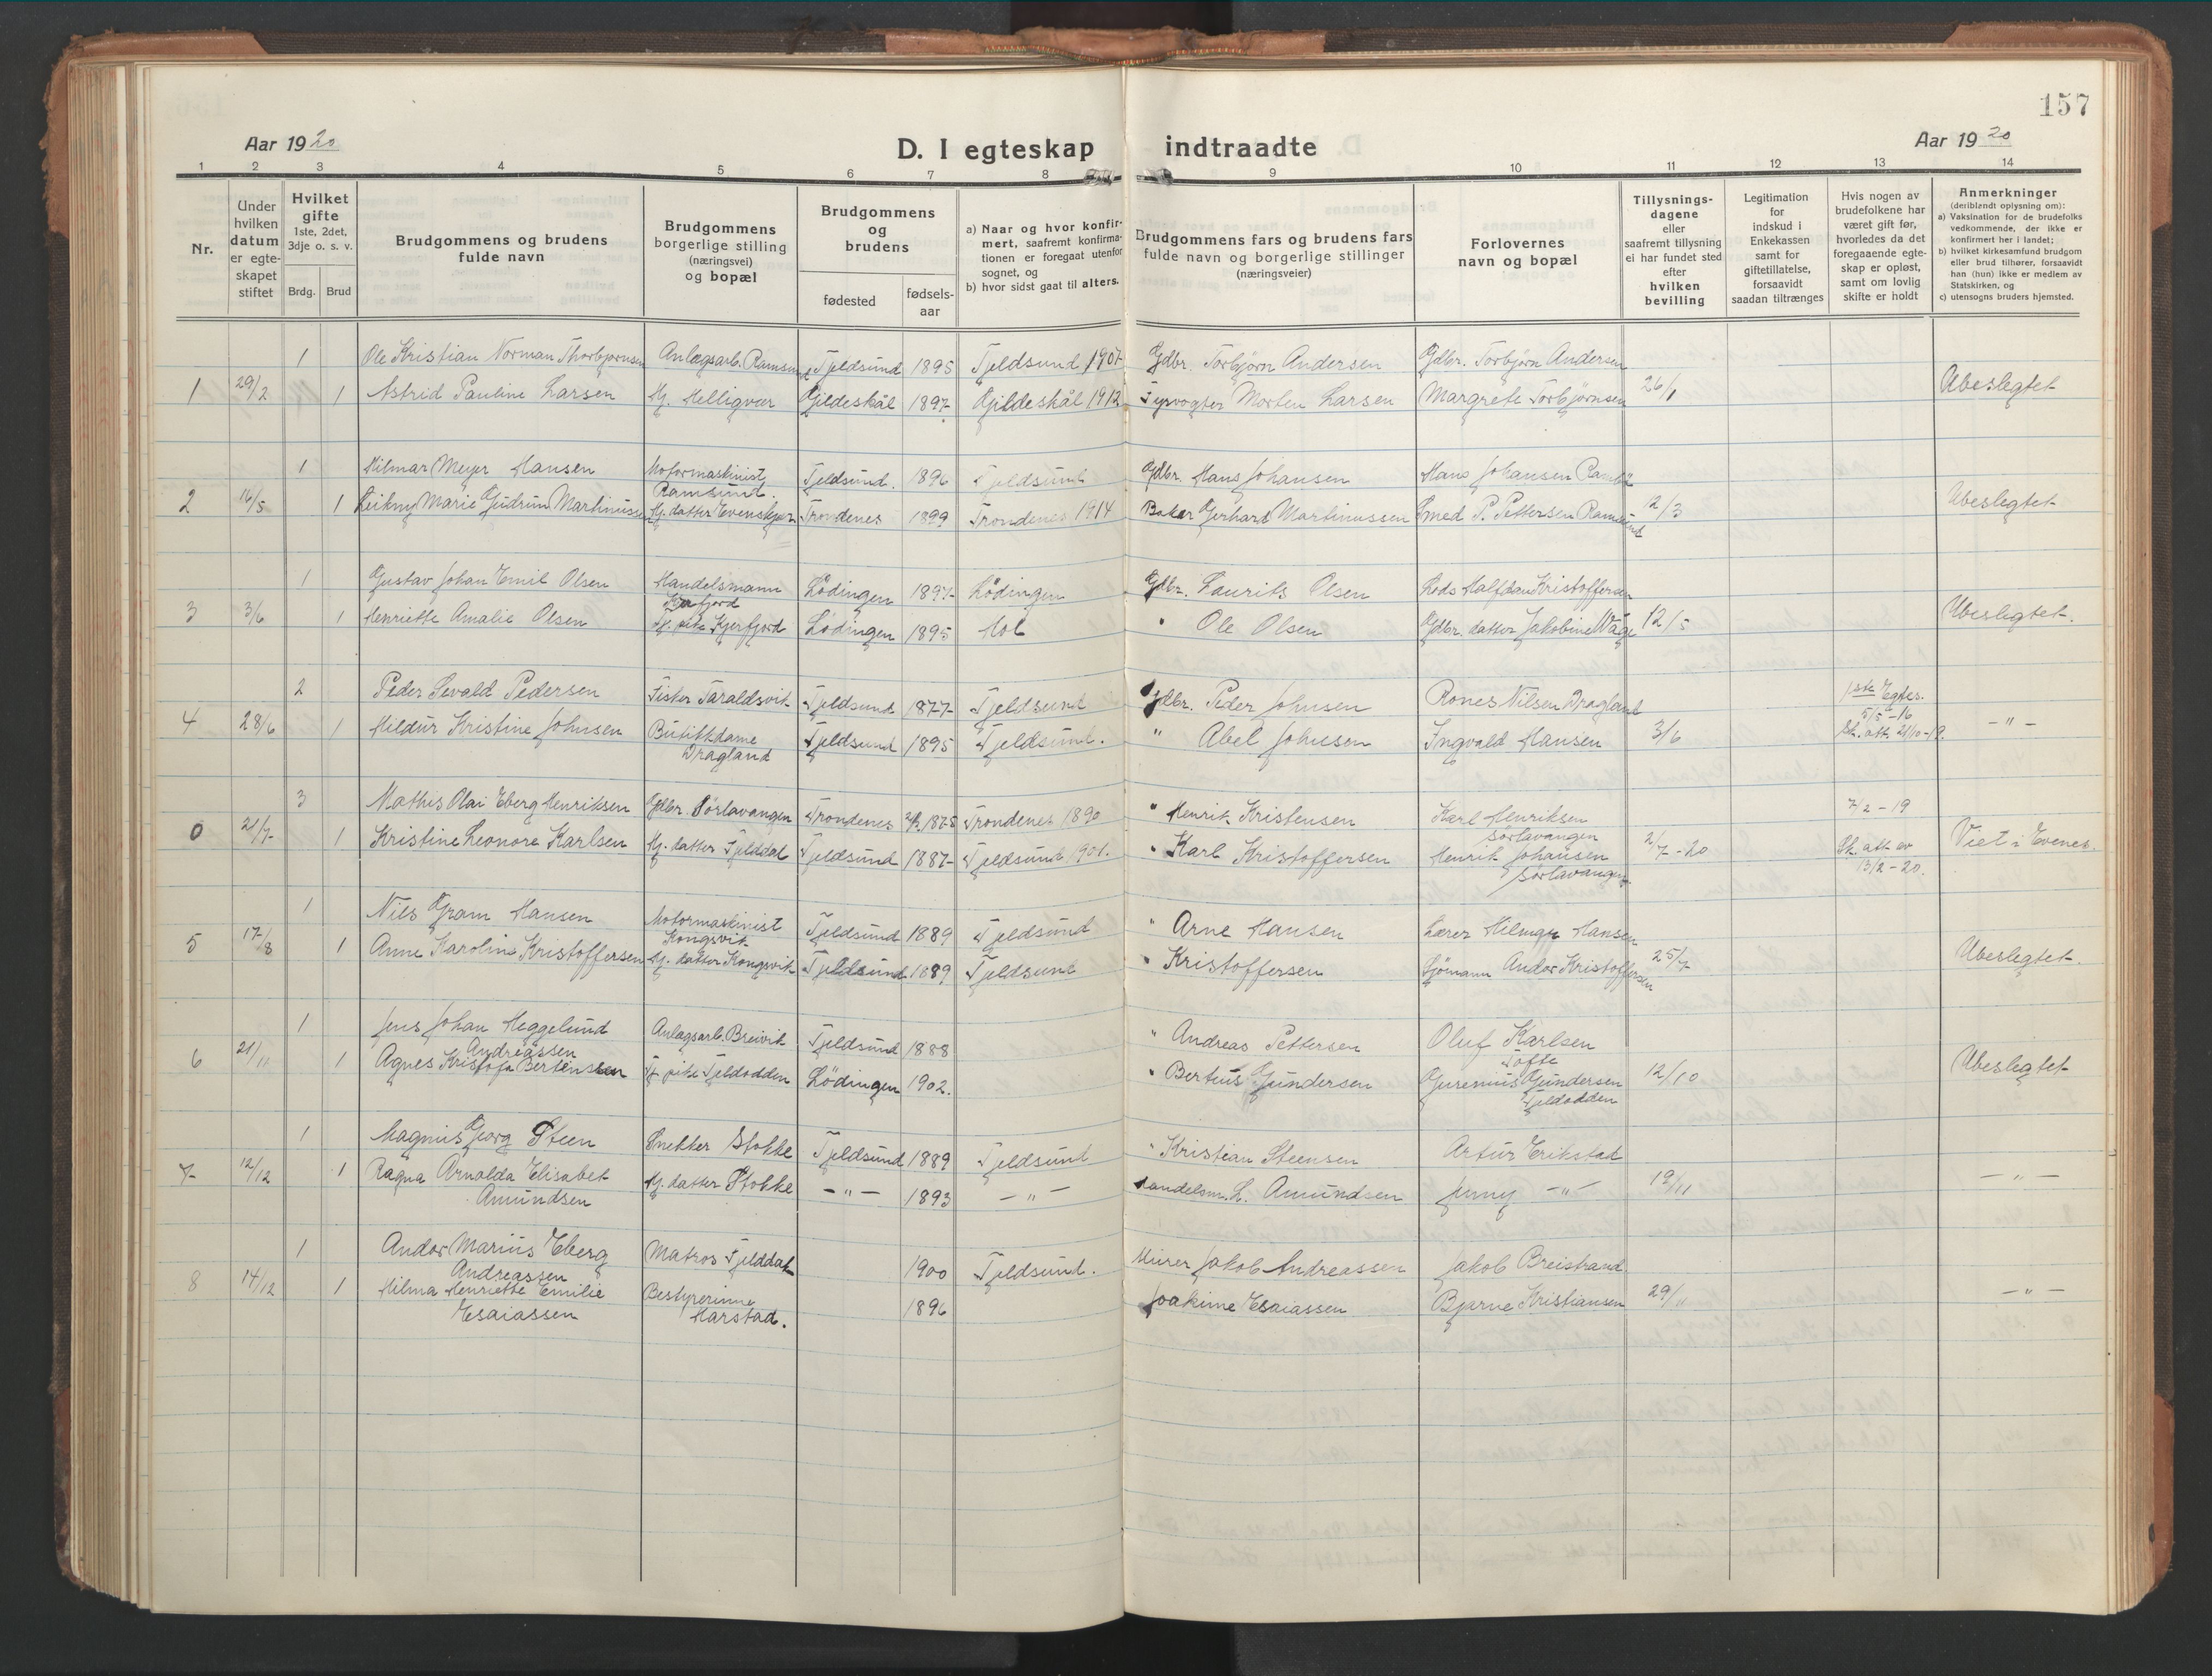 157
Aar 1920
D. I egteskap indtraadte
Aar 1920
1 2 3 4 5 6 7 8 9 10 11 12 13 14
Nr.
Under hvilken datum er egte-skapet stiftet
Hvilket gifte 1ste, 2det, 3dje o. s. v.
Brdg. Brud
Brudgommens og brudens fulde navn
Brudgommens borgerlige stilling (næringsvei) og bopæl
Brudgommens og brudens
fødested
fødsels-aar
a) Naar og hvor konfir-mert, saafremt konfirma-tionen er foregaat utenfor sognet, og
b) hvor sidst gaat til alters.
Brudgommens fars og brudens fars fulde navn og borgerlige stillinger (næringsveier)
Forlovernes navn og bopæl
Tillysnings-dagene eller saafremt tillysning ei har fundet sted efter hvilken bevilling
Legitimation for indskud i Enkekassen samt for giftetillatelse, forsaavidt saadan tiltrænges
Hvis nogen av brudefolkene har været gift før, hvorledes da det foregaaende egte-skap er opløst, samt om lovlig skifte er holdt
Anmerkninger
(deriblandt oplysning om):
a) Vaksination for de brudefolks vedkommende, der ikke er konfirmert her i landet;
b) hvilket kirkesamfund brudgom eller brud tilhører, forsaavidt han (hun) ikke er medlem av Statskirken, og
c) utensogns bruders hjemsted.
1 Ole Kristian Norman Thorbjørnsen Anlægsarb. Ramsund Tjeldsund 1895 Tjeldsund 1907 Gdbr. Torbjörn Andersen Gdbr. Torbjörn Andersen
1 29/2 1 Astrid Pauline Larsen Hj. Helligvær Gildeskål 1897 Gildeskål 1912 Fyrvogter Morten Larsen Margrete Torbjörnsen 26/1 Ubeslegtet
1 Hilmar Meyer Hansen Motormaskinist Ramsund. Tjeldsund. 1896 Tjeldsund Gdbr. Hans Johansen Hans Johansen
2 16/5 1 Leikny Marie Gudrun Martinussen Hj. datter Evenskjer Trondenes 1899 Trondenes 1914 Baker Gerhard Martinussen Smed P. Pettersen Ramsund 12/3 Ubeslegtet
1 Gustav Johan Emil Olsen Handelsmann Lödingen 1897 Lödingen Gdbr. Laurits Olsen Lods Halfdan Kristoffersen
3 3/6 1 Henriette Amalie Olsen Kjerfjord Lödingen 1895 Hol " Ole Olsen Gdbr. datter Jakobine Våge 12/5 Ubeslegtet.
2 Peder Sevald Pedersen Fisker Taraldsvik Tjeldsund 1877 Tjeldsund Gdbr. Peder Johnsen Rones Nilsen Dragland 1ste Egtes. 5/5-16
4 28/6 1 Hildur Kristine Johnsen Butikkdame Dragland Tjeldsund 1895 Tjeldsund. " Abel Johnsen Ingvald Hansen 3/6 Sk. att. 21/10-19. -"-
3 Mathis Olai Eberg Henriksen Gdbr. Sörlavangen Trondenes 1878 Trondenes 1890 " Henrik Kristensen Karl Henriksen Sörlavangen 7/2-19
0 21/7 1 Kristine Leonore Karlsen Hj. datter Fjelddal Tjeldsund 1887 Tjeldsund 1901. " Karl Kristoffersen Henrik Johansen Sörlavangen 2/7-20 Sk. att av 13/2-20. Viet i Evenes.
1 Nils Gram Hansen Motormaskinist Kongsvik Tjeldsund 1889 Tjeldsund " Arne Hansen Lærer Hilmar Hansen
5 17/8 1 Anne Karoline Kristoffersen Hj. datter Kongsvik Tjeldsund 1889 Tjeldsund " Kristoffersen Sjömann Andor Kristoffersen 25/7 Ubeslegtet.
1 Jens Johan Heggelund Andreassen Anlægsarb. Breivik Tjeldsund 1888 " Andreas Pettersen Oluf Karlsen
6 21/11 1 Agnes Kristofa Bertinsen Tj. pike Fjeldodden Lödingen 1902. " Bertius Gundersen Gurenius Gundersen Fjeldodden 12/10 Ubeslegtet
1 Magnus Georg Steen Snekker Stokke Tjeldsund 1889 Tjeldsund " Kristian Steensen Artur Erikstad
7 12/12 1 Ragna Arnalda Elisabet Amundsen Hj. datter Stokke -"- 1893 -"- Handelsm. L. Amundsen Jenny -"- 19/11 -"-
1 Andor Marius Eberg Andreassen Matros Fjelddal 1900 Tjeldsund. Murer Jakob Andreassen Jakob Breistrand
8 14/12 1 Hilma Henriette Emilie Esaiassen Bestyrerinne Harstad. 1896 Joakime Esaiassen Bjarne Kristiansen 29/11 -"-